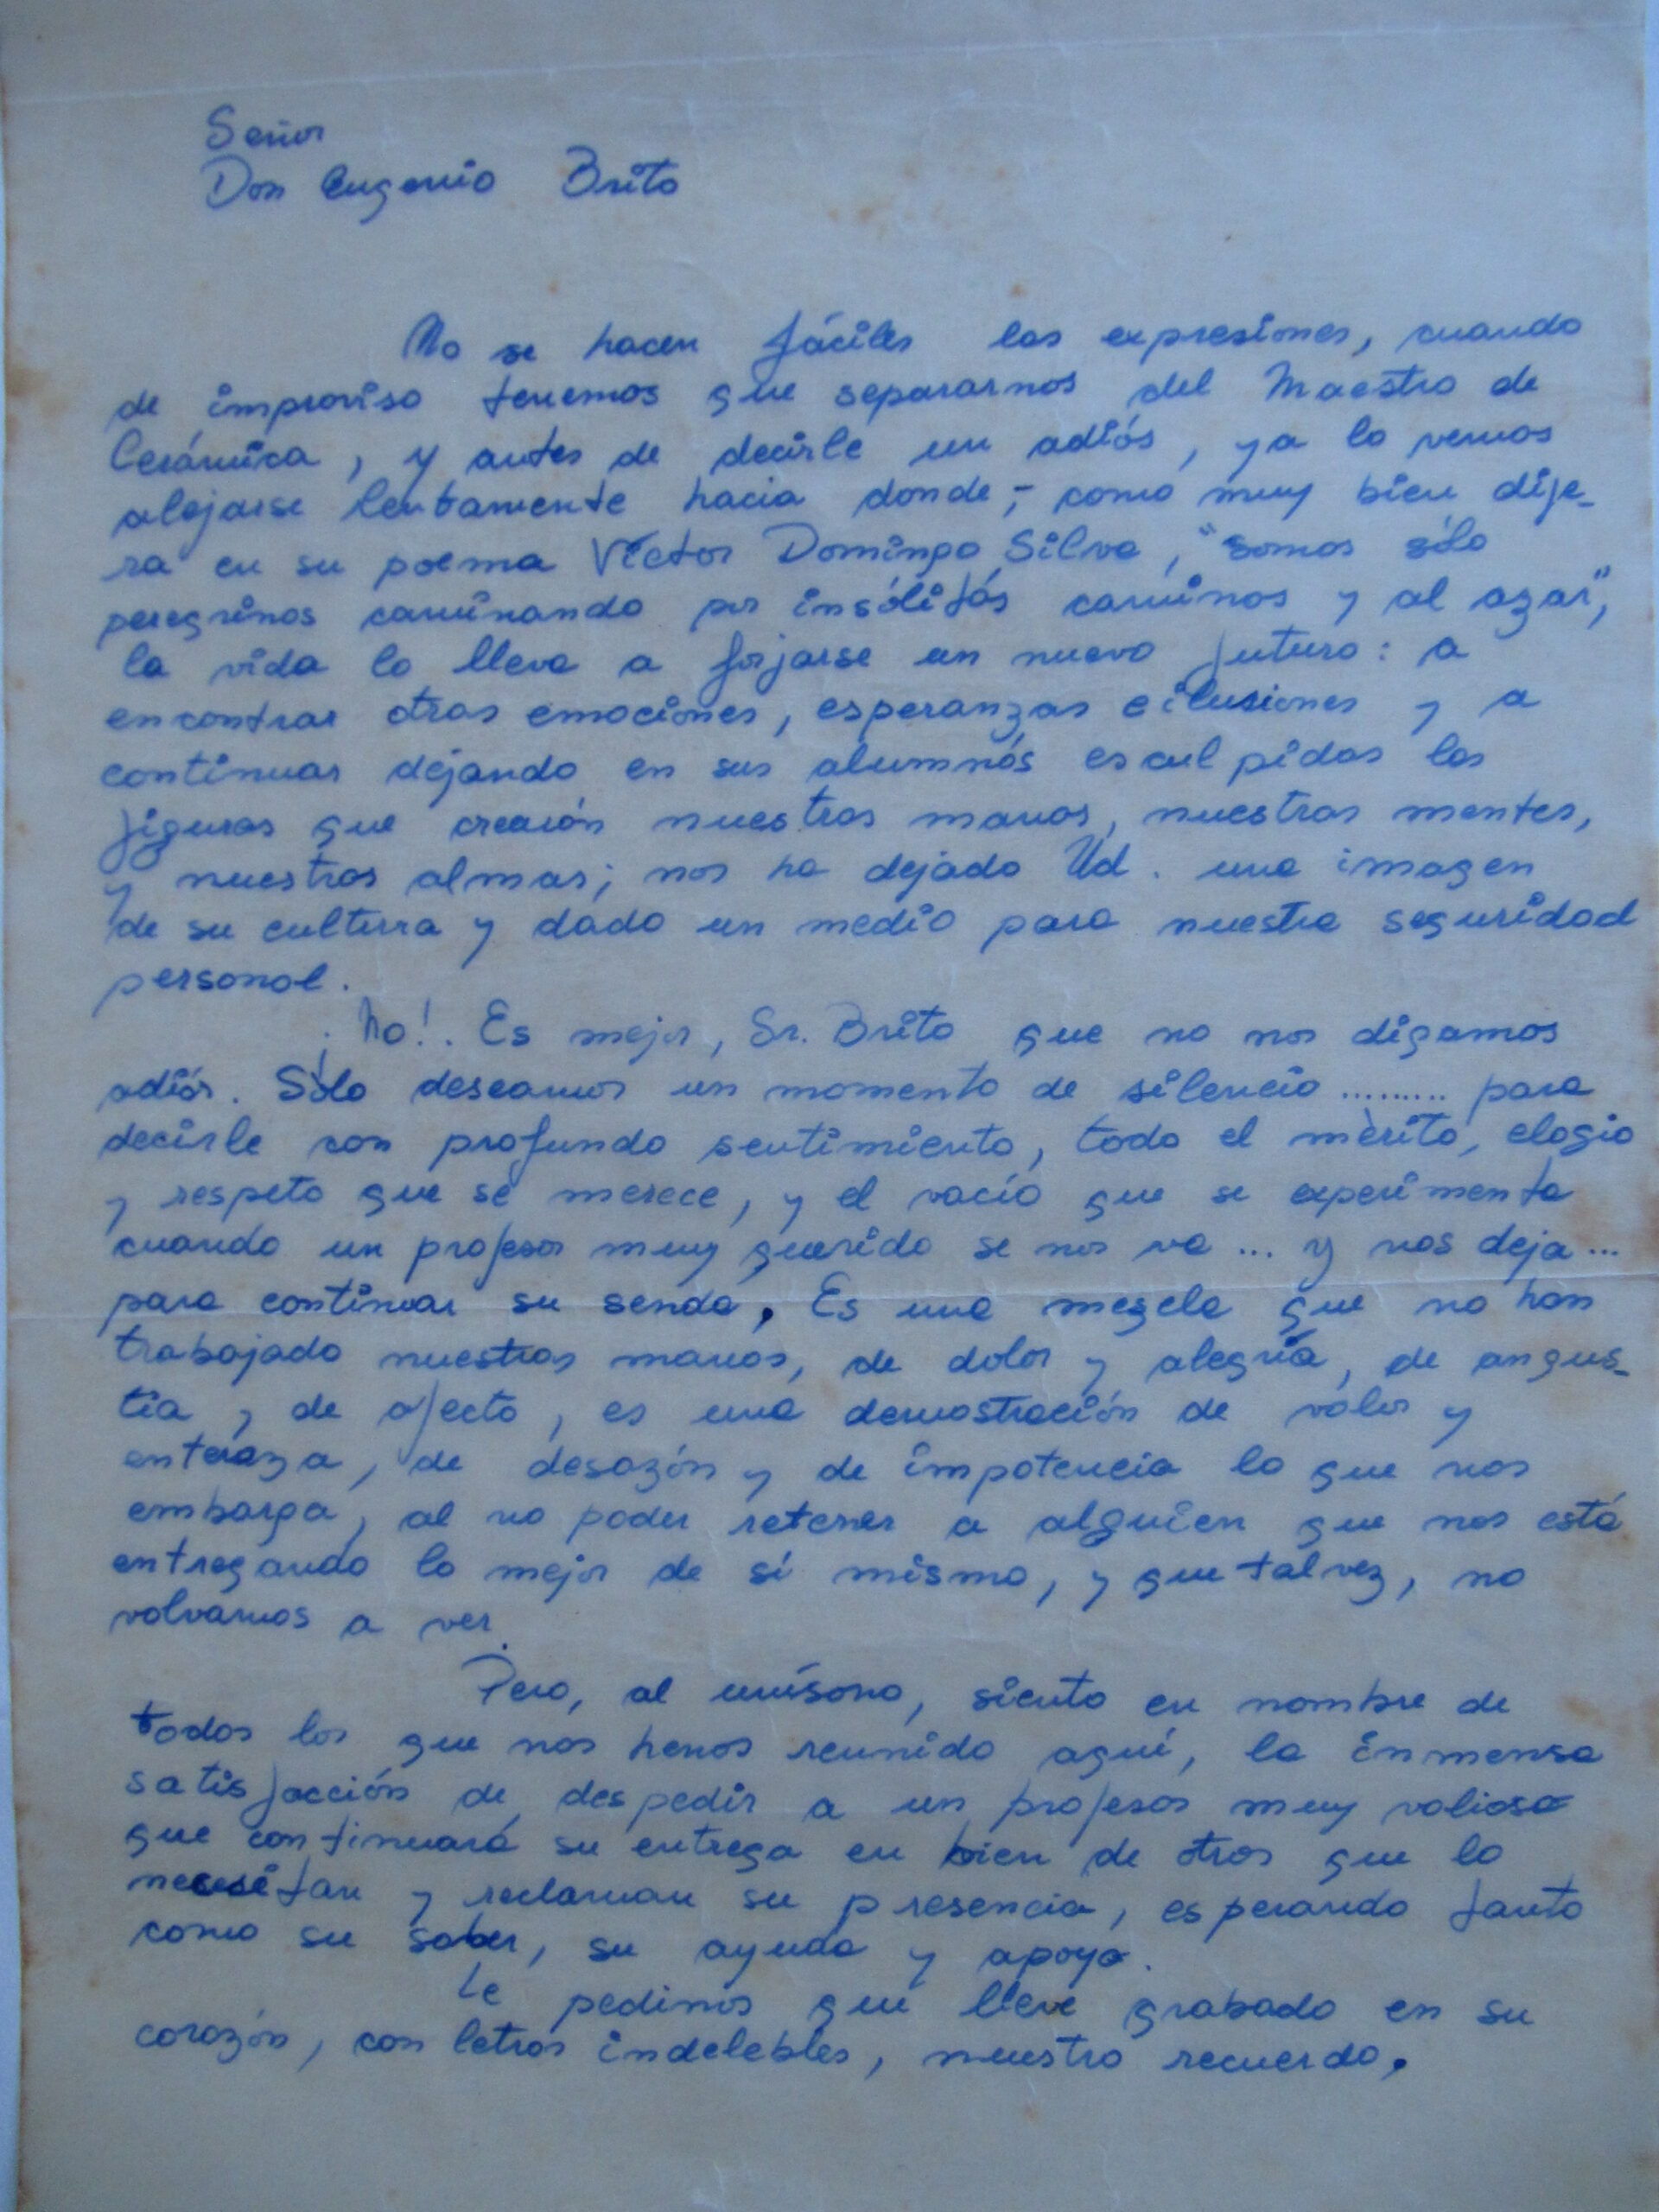 Señor
Don Eugenio Brito
No se hacen fáciles las expresiones, cuando
de improviso tenemos que separarnos del Maestro de
Cerámica, y antes de decirle un adiós, ya lo vemos
alejarse lentamente hacia donde,- como muy bien dije-
ra en su poema Víctor Domingo Silva, "somos sólo
peregrinos caminando por insólitos caminos y al azar",
la vida lo lleva a forjarse un nuevo futuro: a
encontrar otras emociones, esperanzas e ilusiones y a
continuar dejando en sus alumnos esculpidas las
figuras que crearón nuestras manos, nuestras mentes,
y nuestras almas; nos ha dejado Ud. una imagen
de su cultura y dado un medio para nuestra seguridad
personal.
¡No!. Es mejor, Sr. Brito que no nos digamos
adiós. Sólo deseamos un momento de silencio ......... para
decirle con profundo sentimiento, todo el mérito, elogio
y respeto que se merece, y el vacío que se experimenta
cuando un profesor muy querido se nos va ... y nos deja ...
para continuar su senda. Es una mezcla que no han
trabajado nuestras manos, de dolor y alegría, de angus-
tia y de afecto, es una demostración de valor y
entereza, de desazón y de impotencia lo que nos
embarga, al no poder retener a alguien que nos está
entregando lo mejor de sí mismo, y que talvez, no
volvamos a ver.
Pero, al unísono, siento en nombre de
todos los que nos hemos reunido aquí, la inmensa
satisfacción de despedir a un profesor muy valioso
que continuará su entrega en bien de otros que lo
necesitan y reclaman su presencia, esperando tanto
como su saber, su ayuda y apoyo.
Le pedimos que lleve grabado en su
corazón, con letras indelebles, nuestro recuerdo.